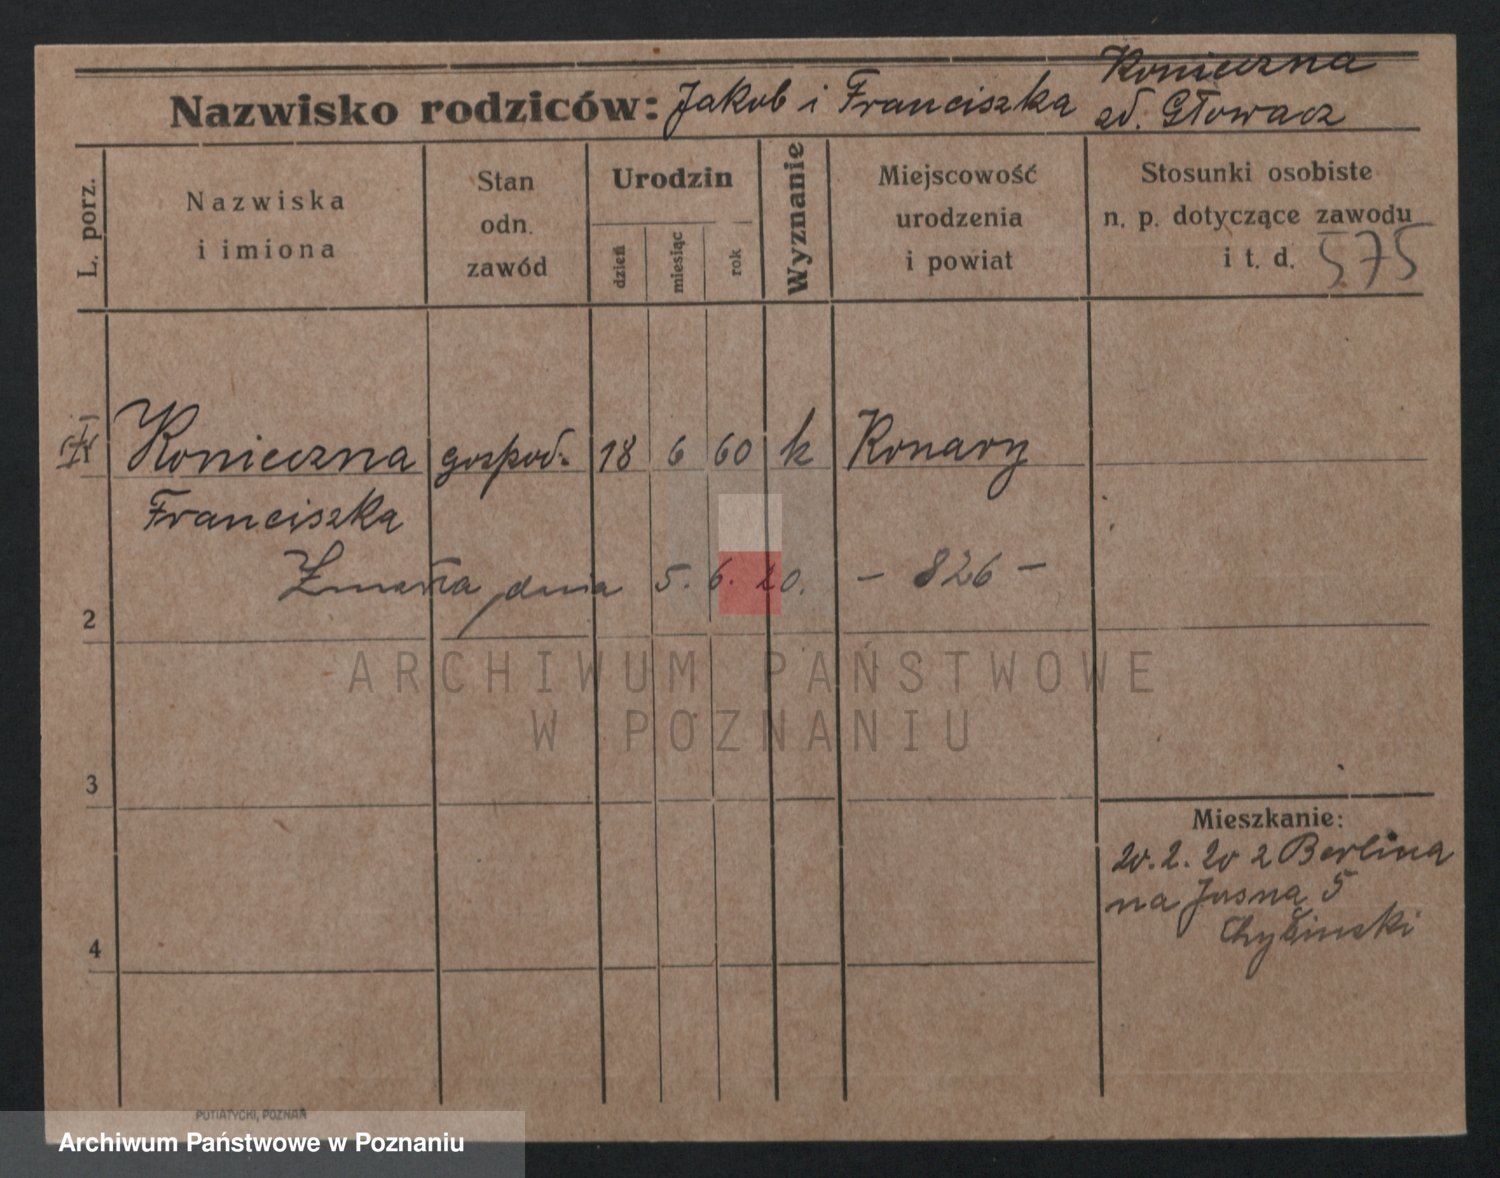 Konieczna
Nazwisko rodziców: Jakob i Franciszka zd. Głowacz
L. porz.
Nazwiska
i imiona
Stan
odn.
zawód
Urodzin
dzień
miesiąc
rok
Wyznanie
Miejscowość
urodzenia
i powiat
Stosunki osobiste
n. p. dotyczące zawodu
i t. d. 575
Konieczna gospod. 18 6 60 k Konary
Franciszka
Zmarła dnia 5. 6. 20. — 826 —
2
3
4
Mieszkanie:
20. 2. 20 z Berlina
na Jasna 5
Chybinski
ARCHIWUM PAŃSTWOWE
W POZNANIU
PUTIATYCKI, POZNAŃ
Archiwum Państwowe w Poznaniu